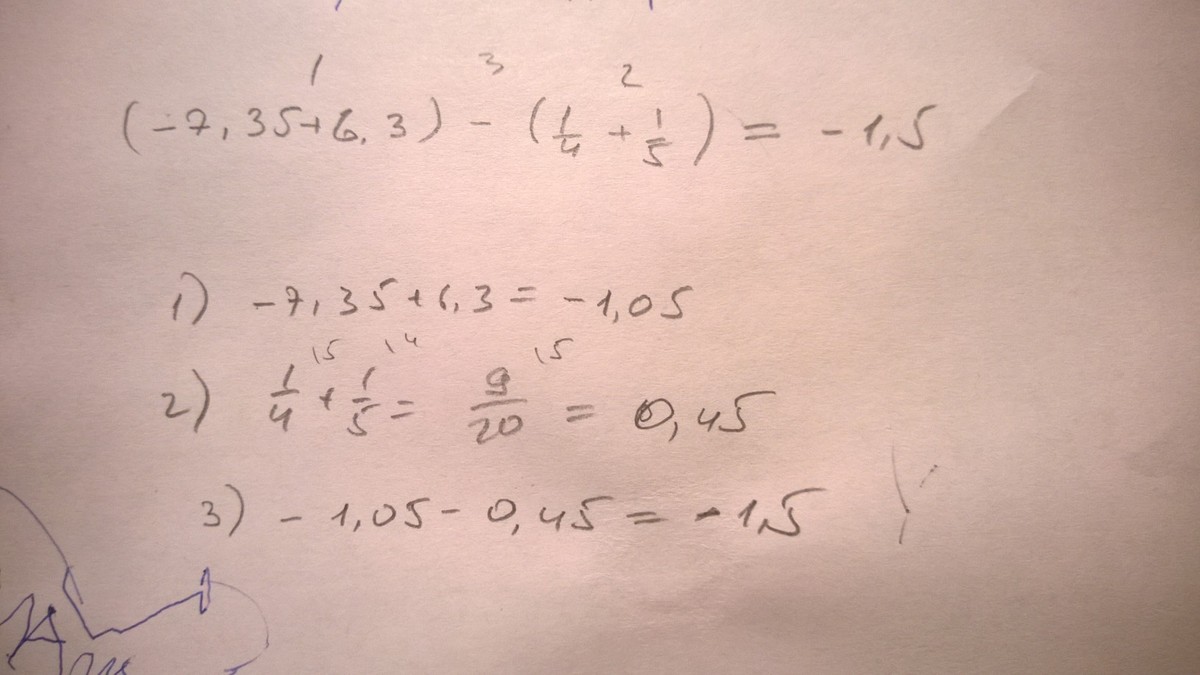 1 3 2
(-7,35+6,3) - (1/4 + 1/5) = -1,5
1) -7,35+6,3 = -1,05
15 14 15
2) 1/4 + 1/5 = 9/20 = 0,45
3) -1,05 - 0,45 = -1,5